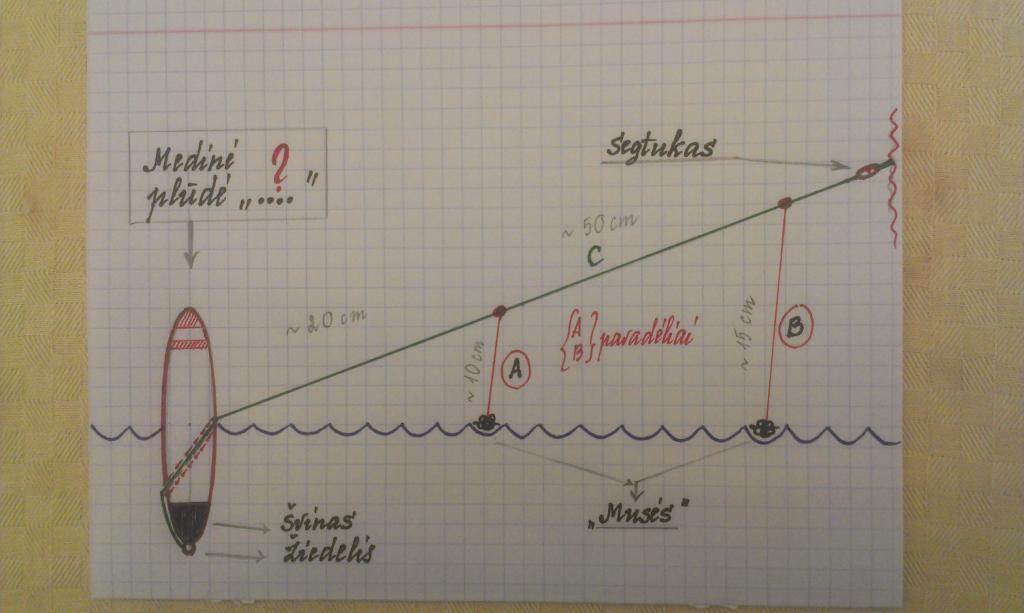 Medinė ?
plūdė „....”
Segtukas
~ 50 cm
C
~ 20 cm
~ 10 cm
A
{A
B} pavadėliai
~ 15 cm
B
„Musės”
Švinas
Žiedelis